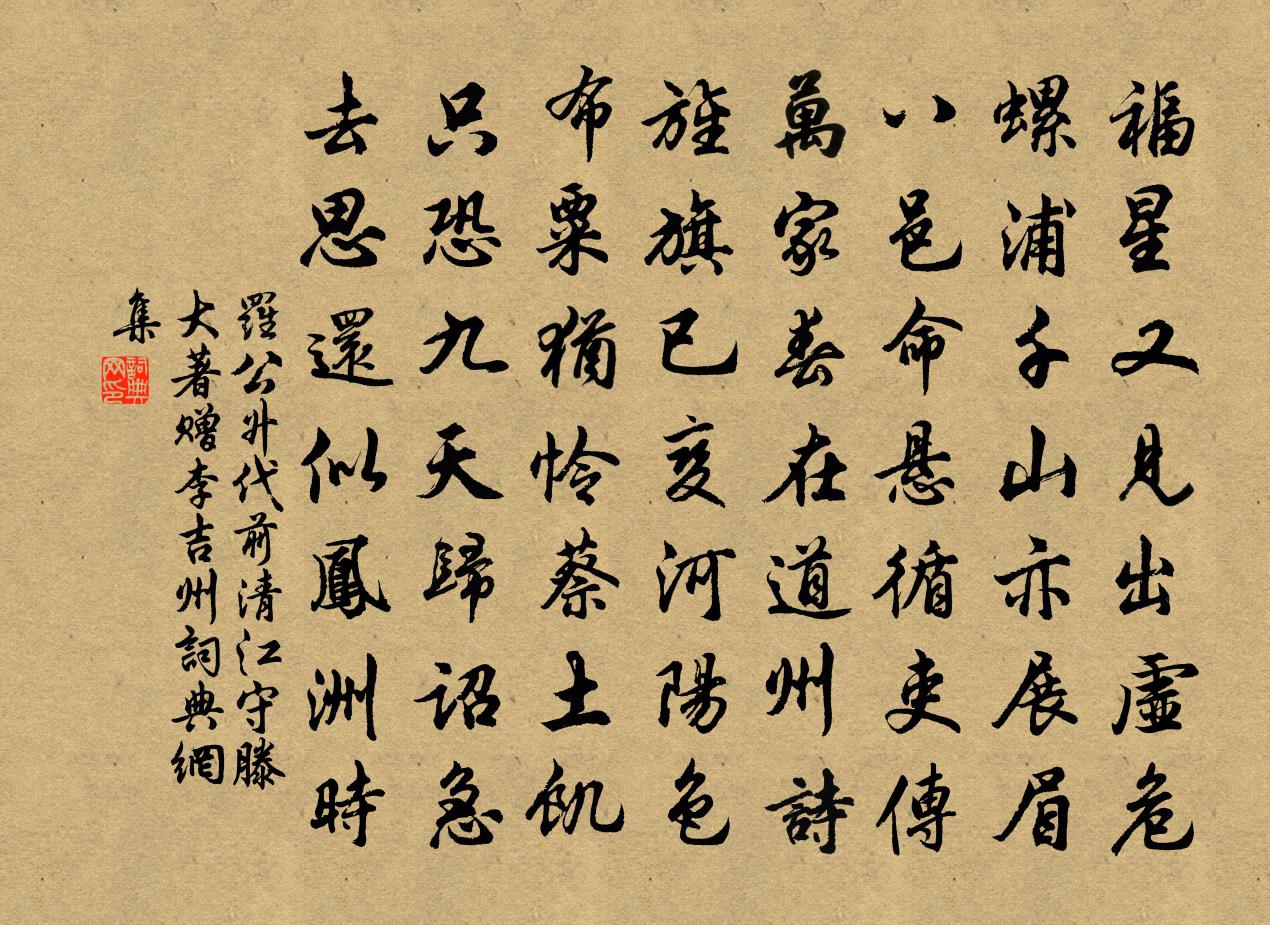 福星又見出虛危
螺浦千山亦展眉
八邑命懸循吏傳
萬家春在道州詩
旌旗已変河陽色
布粟猶怜蔡土飢
只恐九天歸詔急
去思還似鳳洲時
羅公升代前清江守滕
大著贈李吉州詞典網
集
詞典
网印